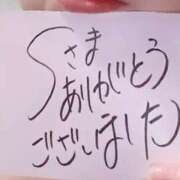 Sさま
ありがとう
ございました